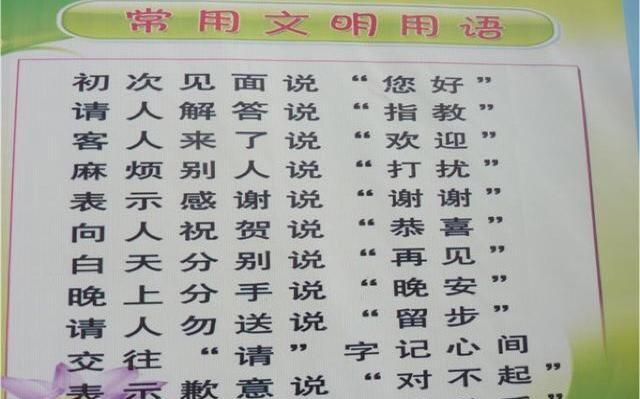 常用文明用语
初次见面说“您好”
请人解答说“指教”
客人来了说“欢迎”
麻烦别人说“打扰”
表示感谢说“谢谢”
向人祝贺说“恭喜”
白天分别说“再见”
晚上分手说“晚安”
请人勿送说“留步”
交往“请”字记心间
表示歉意说“对不起”